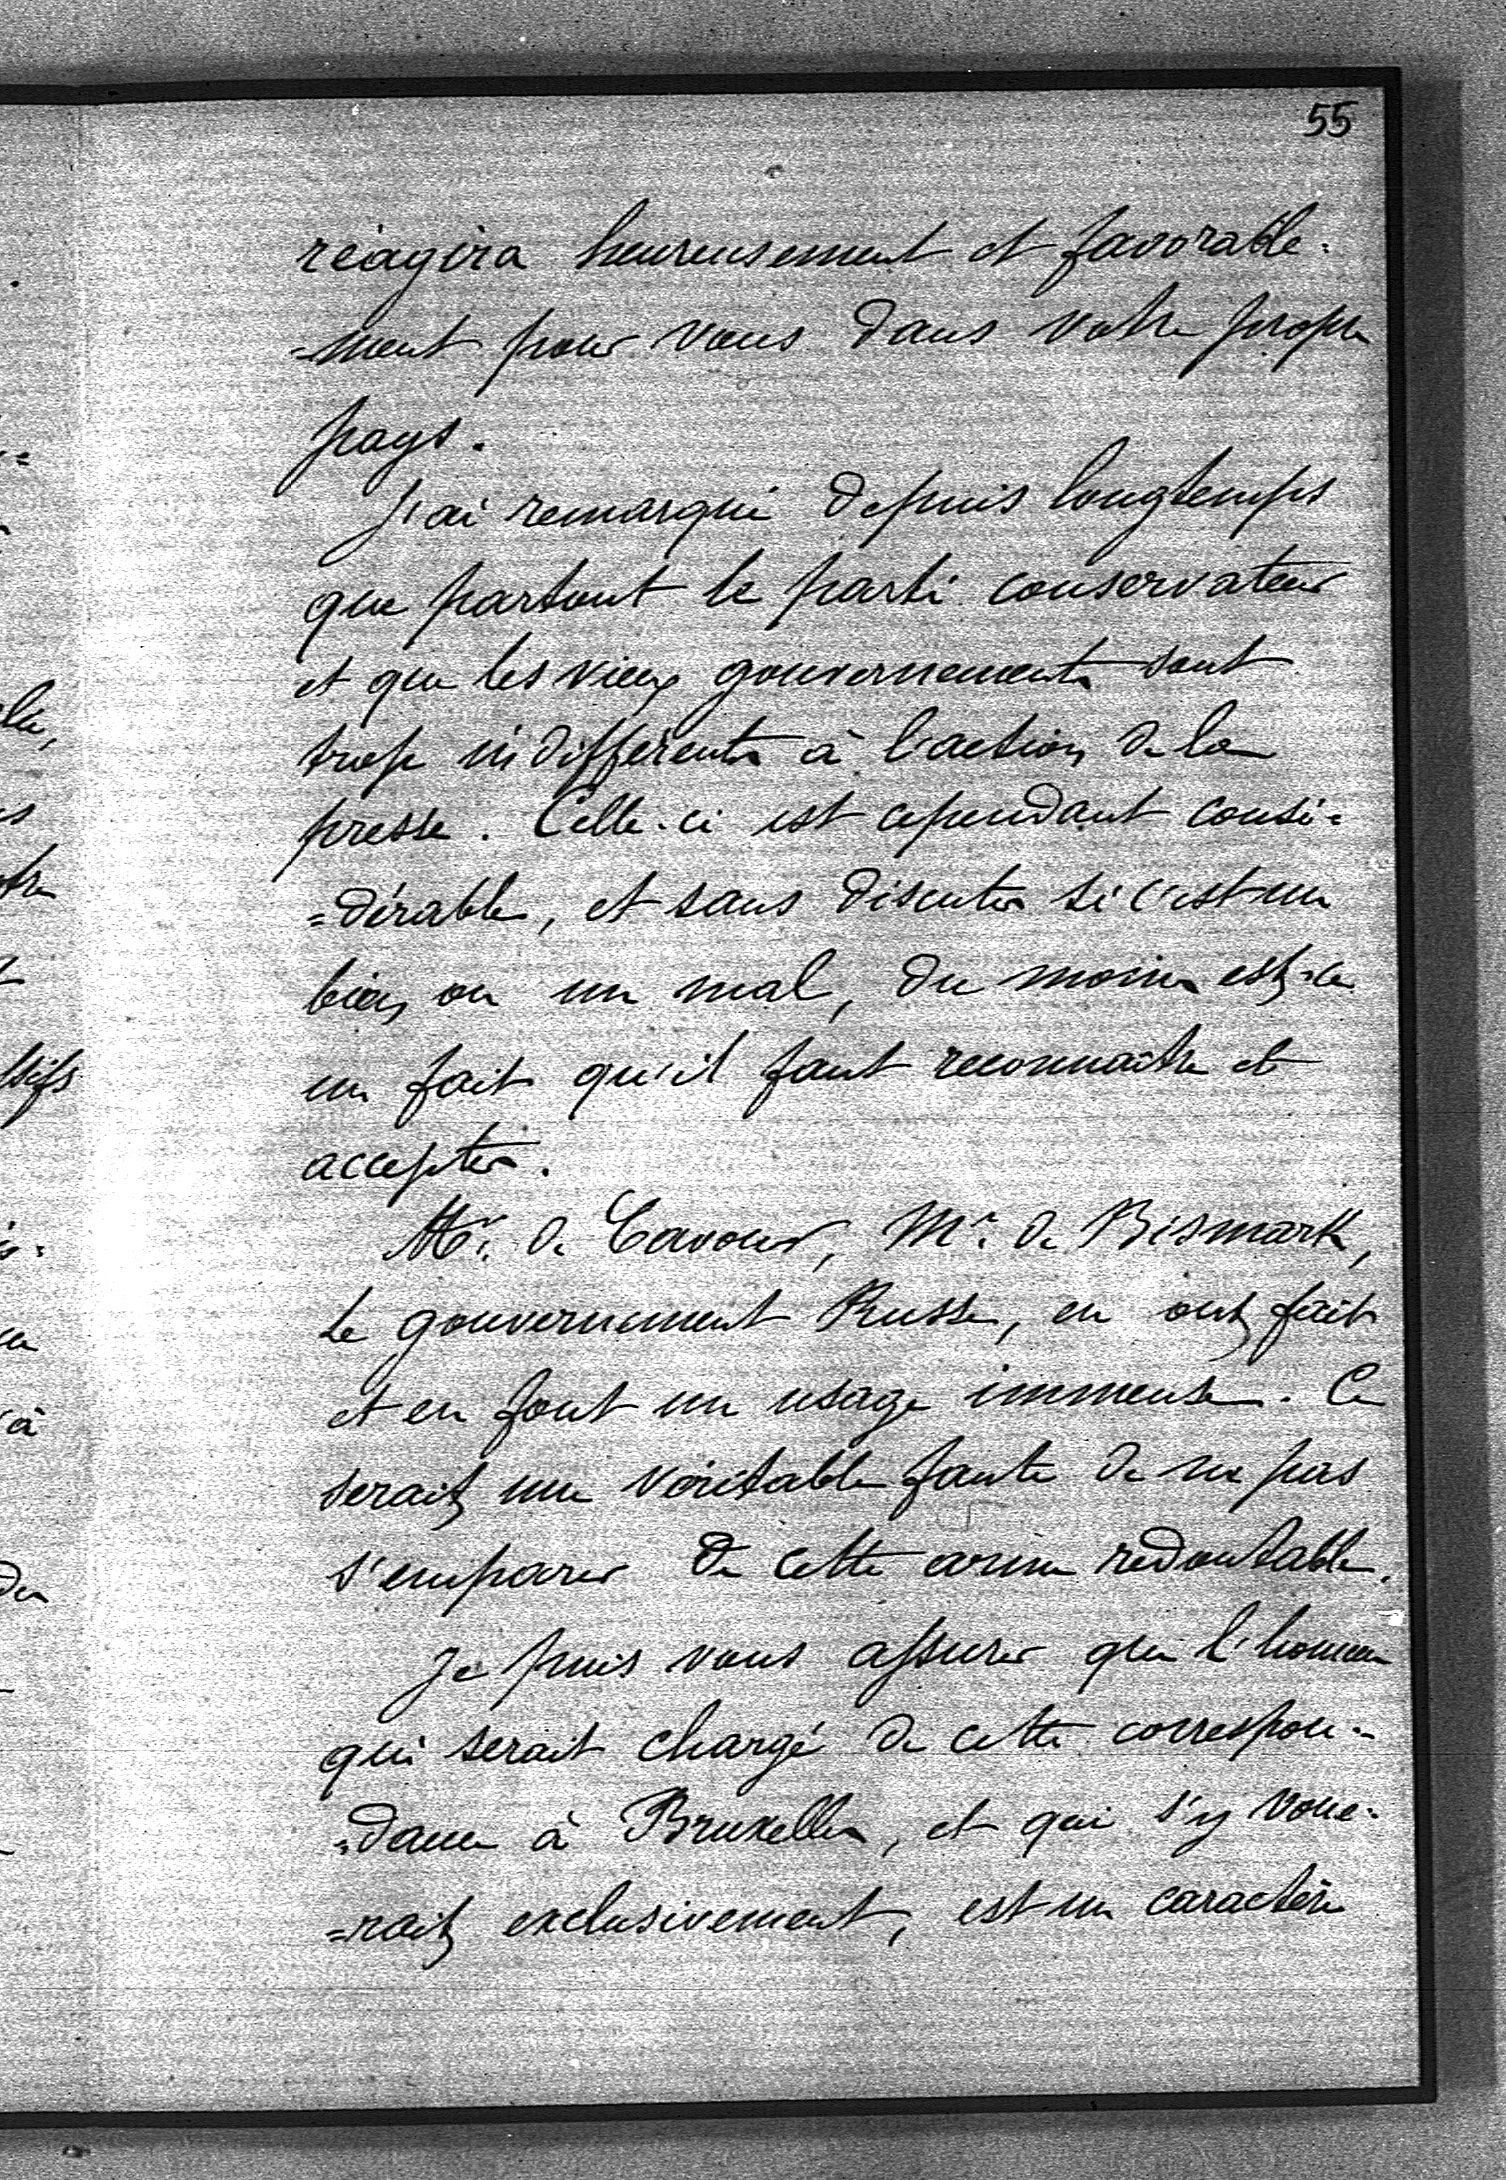 55
réagira heureusement et favorable=
=ment pour vous dans votre propre
pays.
J'ai remarqué depuis longtemps
que partout le parti conservateur
et que les vieux gouvernements sont
trop indifférents à l'action de la
presse. Celle-ci est cependant consi=
=dérable, et sans discuter si c'est un
bien ou un mal, du moins est-ce
un fait qu'il faut reconnaître et
accepter.
Mr. de Cavour, Mr. de Bismark,
le gouvernement Russe, en ont fait
et en font un usage immense. Ce
serait une véritable faute de ne pas
s'emparer de cette arme redoutable.
Je puis vous assurer que l'homme
qui serait chargé de cette correspon=
=dance à Bruxelles, et qui s'y voue=
=rait exclusivement, est un caractère